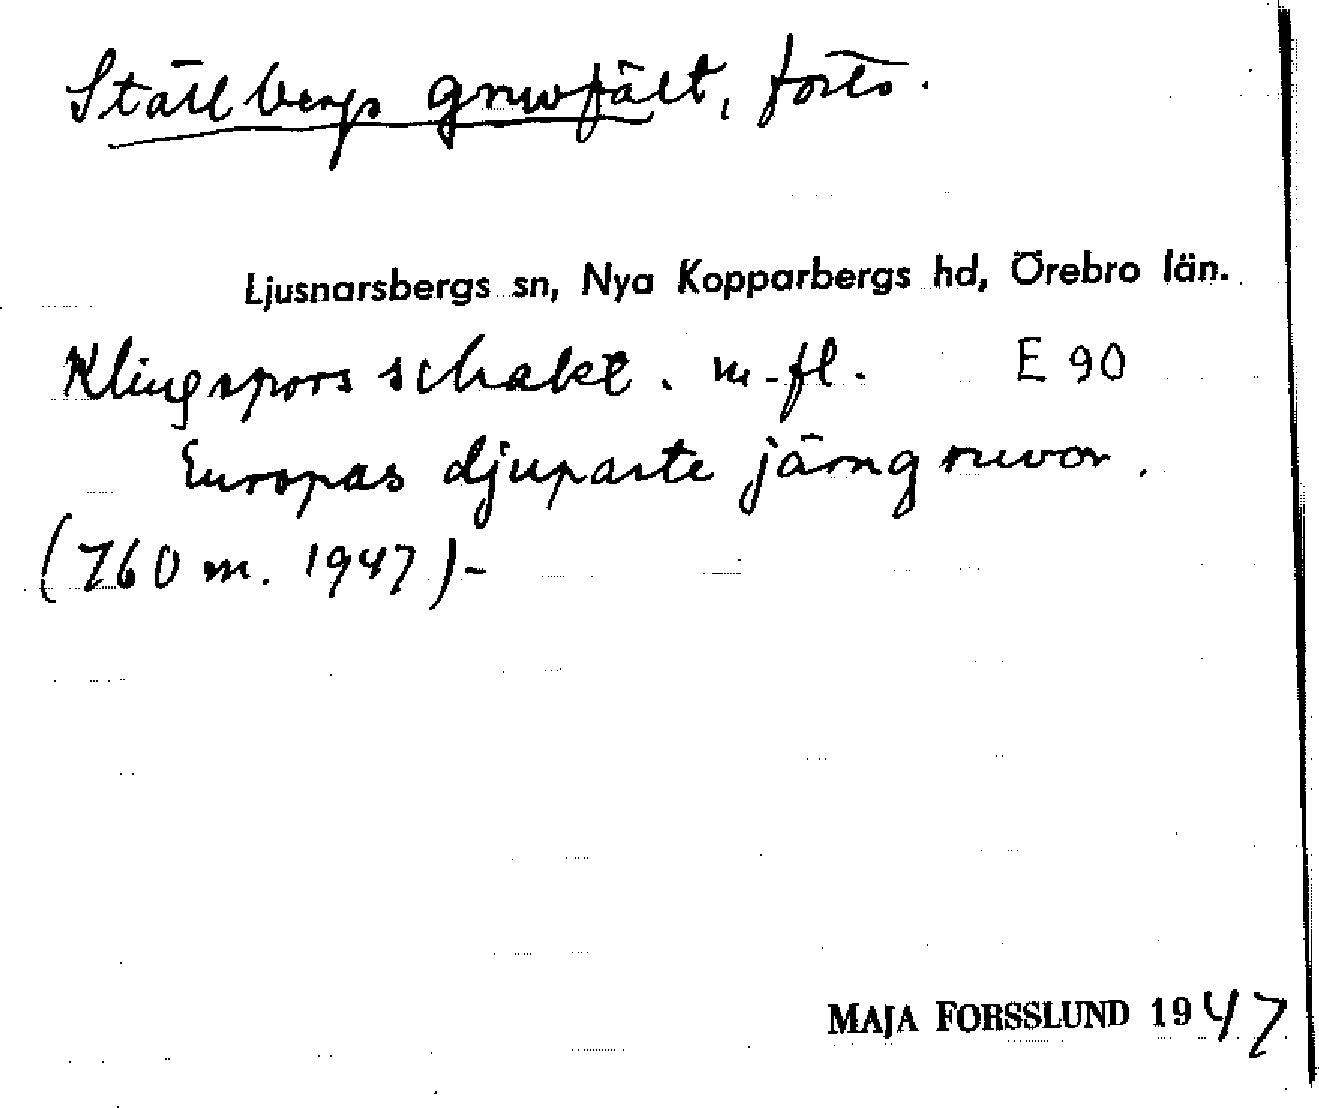 Ställbergs gruvfält, forts.
Ljusnarsbergs sn, Nya Kopparbergs hd, Örebro län.
Klingspors schakt. m.fl. E 90
Europas djupaste järngruvor.
(760 m. 1947)-
MAJA FORSSLUND 1947